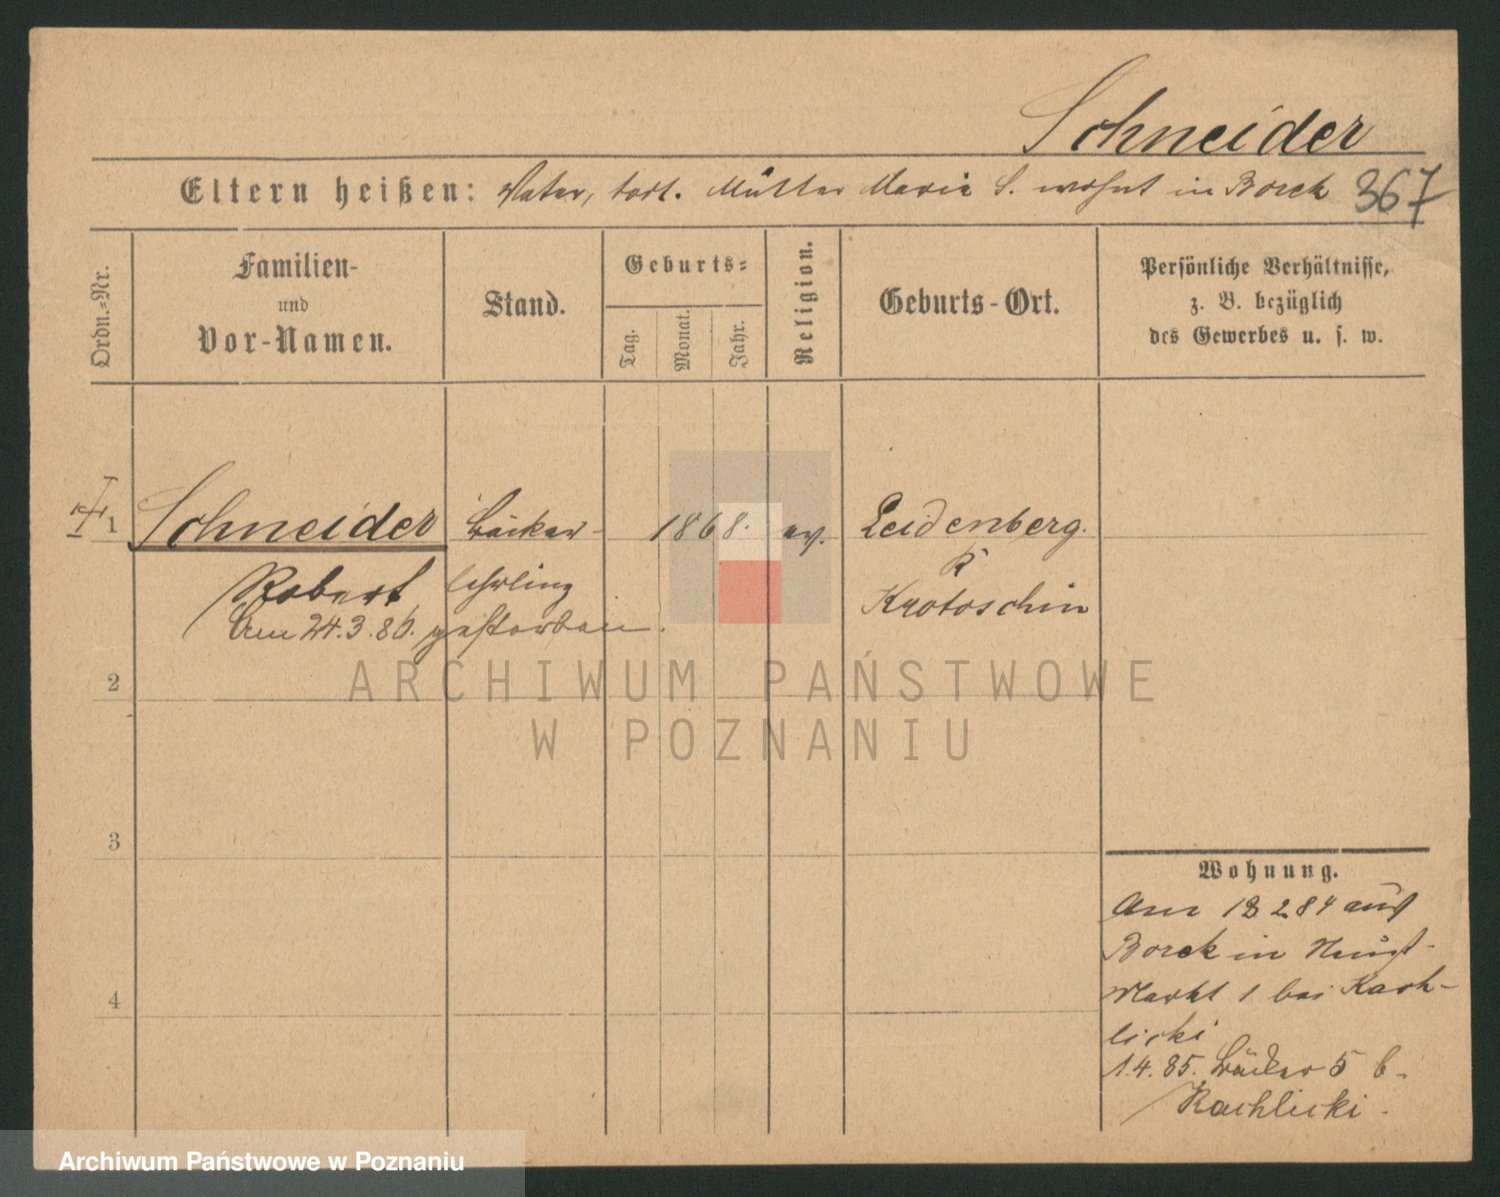 Schneider
Eltern heißen: Vater, todt. Mutter Maria S. wohnt in Borek 367
Ordn.-Nr.
Familien-
und
Vor-Namen.
Stand.
Geburts-
Tag.
Monat.
Jahr.
Religion.
Geburts-Ort.
Persönliche Verhältnisse,
z. B. bezüglich
des Gewerbes u. s. w.
1 Schneider Bäcker- 1868. ev.
Robert lehrling
Krotoschin
Am 24.3.86. gestorben.
2
3
4
Wohnung.
Am 18 2 84 aus
Borek in
Markt 1 bei Kach-
licki
1.4.85. 5 b.
Kachlicki.
ARCHIWUM PAŃSTWOWE
W POZNANIU
Archiwum Państwowe w Poznaniu